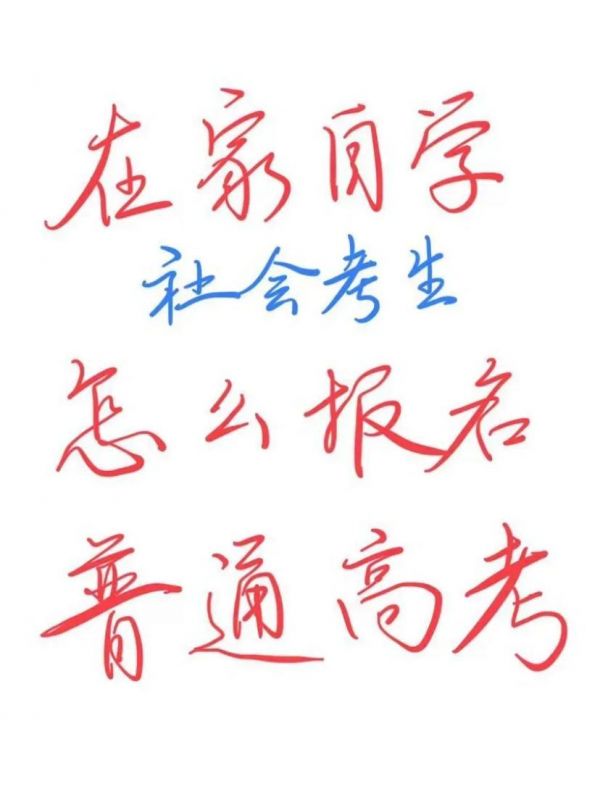 在家自学
社会考生
怎么报名
普通高考